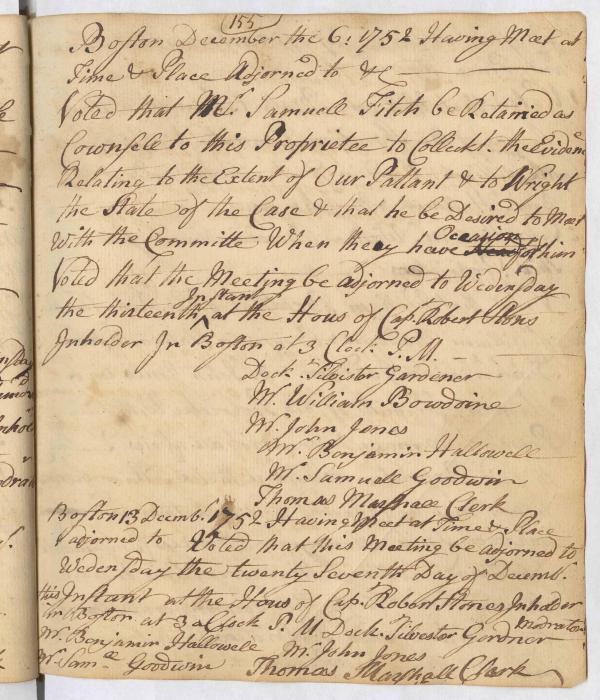 155
Boston December the 6: 1752 Having Meet at
Time & Place Adjorned to &c
Voted that Mr. Samuell Fitch be Retained as
Counsele to this Proprietee to Colleckt the Evidenc
Relating to the Extent of Our Pattant & to Wright
the State of the Case & that he be Desired to Meet
Occasion
With the Committe When they have for him
Voted that the Meeting be adjorned to Wedensday
Instant
the thirteenth ^ at the Hous of Cap. Robert Stons
Inholder In Boston at 3 Clock P.M.
Dock. Silvister Gardener
Mr. William Bowdoine
Mr. John Jones
Mr. Benjamin Hallowell
Mr. Samuell Goodwin
Thomas Marshall Clerk
Boston 13 Decemb. 1752 Having Meet at Time & Place
adjorned to Voted that this Meeting be adjorned to
Wedensday the twenty Seventh Day of Decemb.
this Instant at the Hous of Cap. Robert Stones Inholder
In Boston at 3 a Clock P.M Dock. Silvester Gardner Modrator
Mr. Benjamin Hallowell Mr. John Jones
Mr. Samll Goodwin Thomas Marshall Clerk